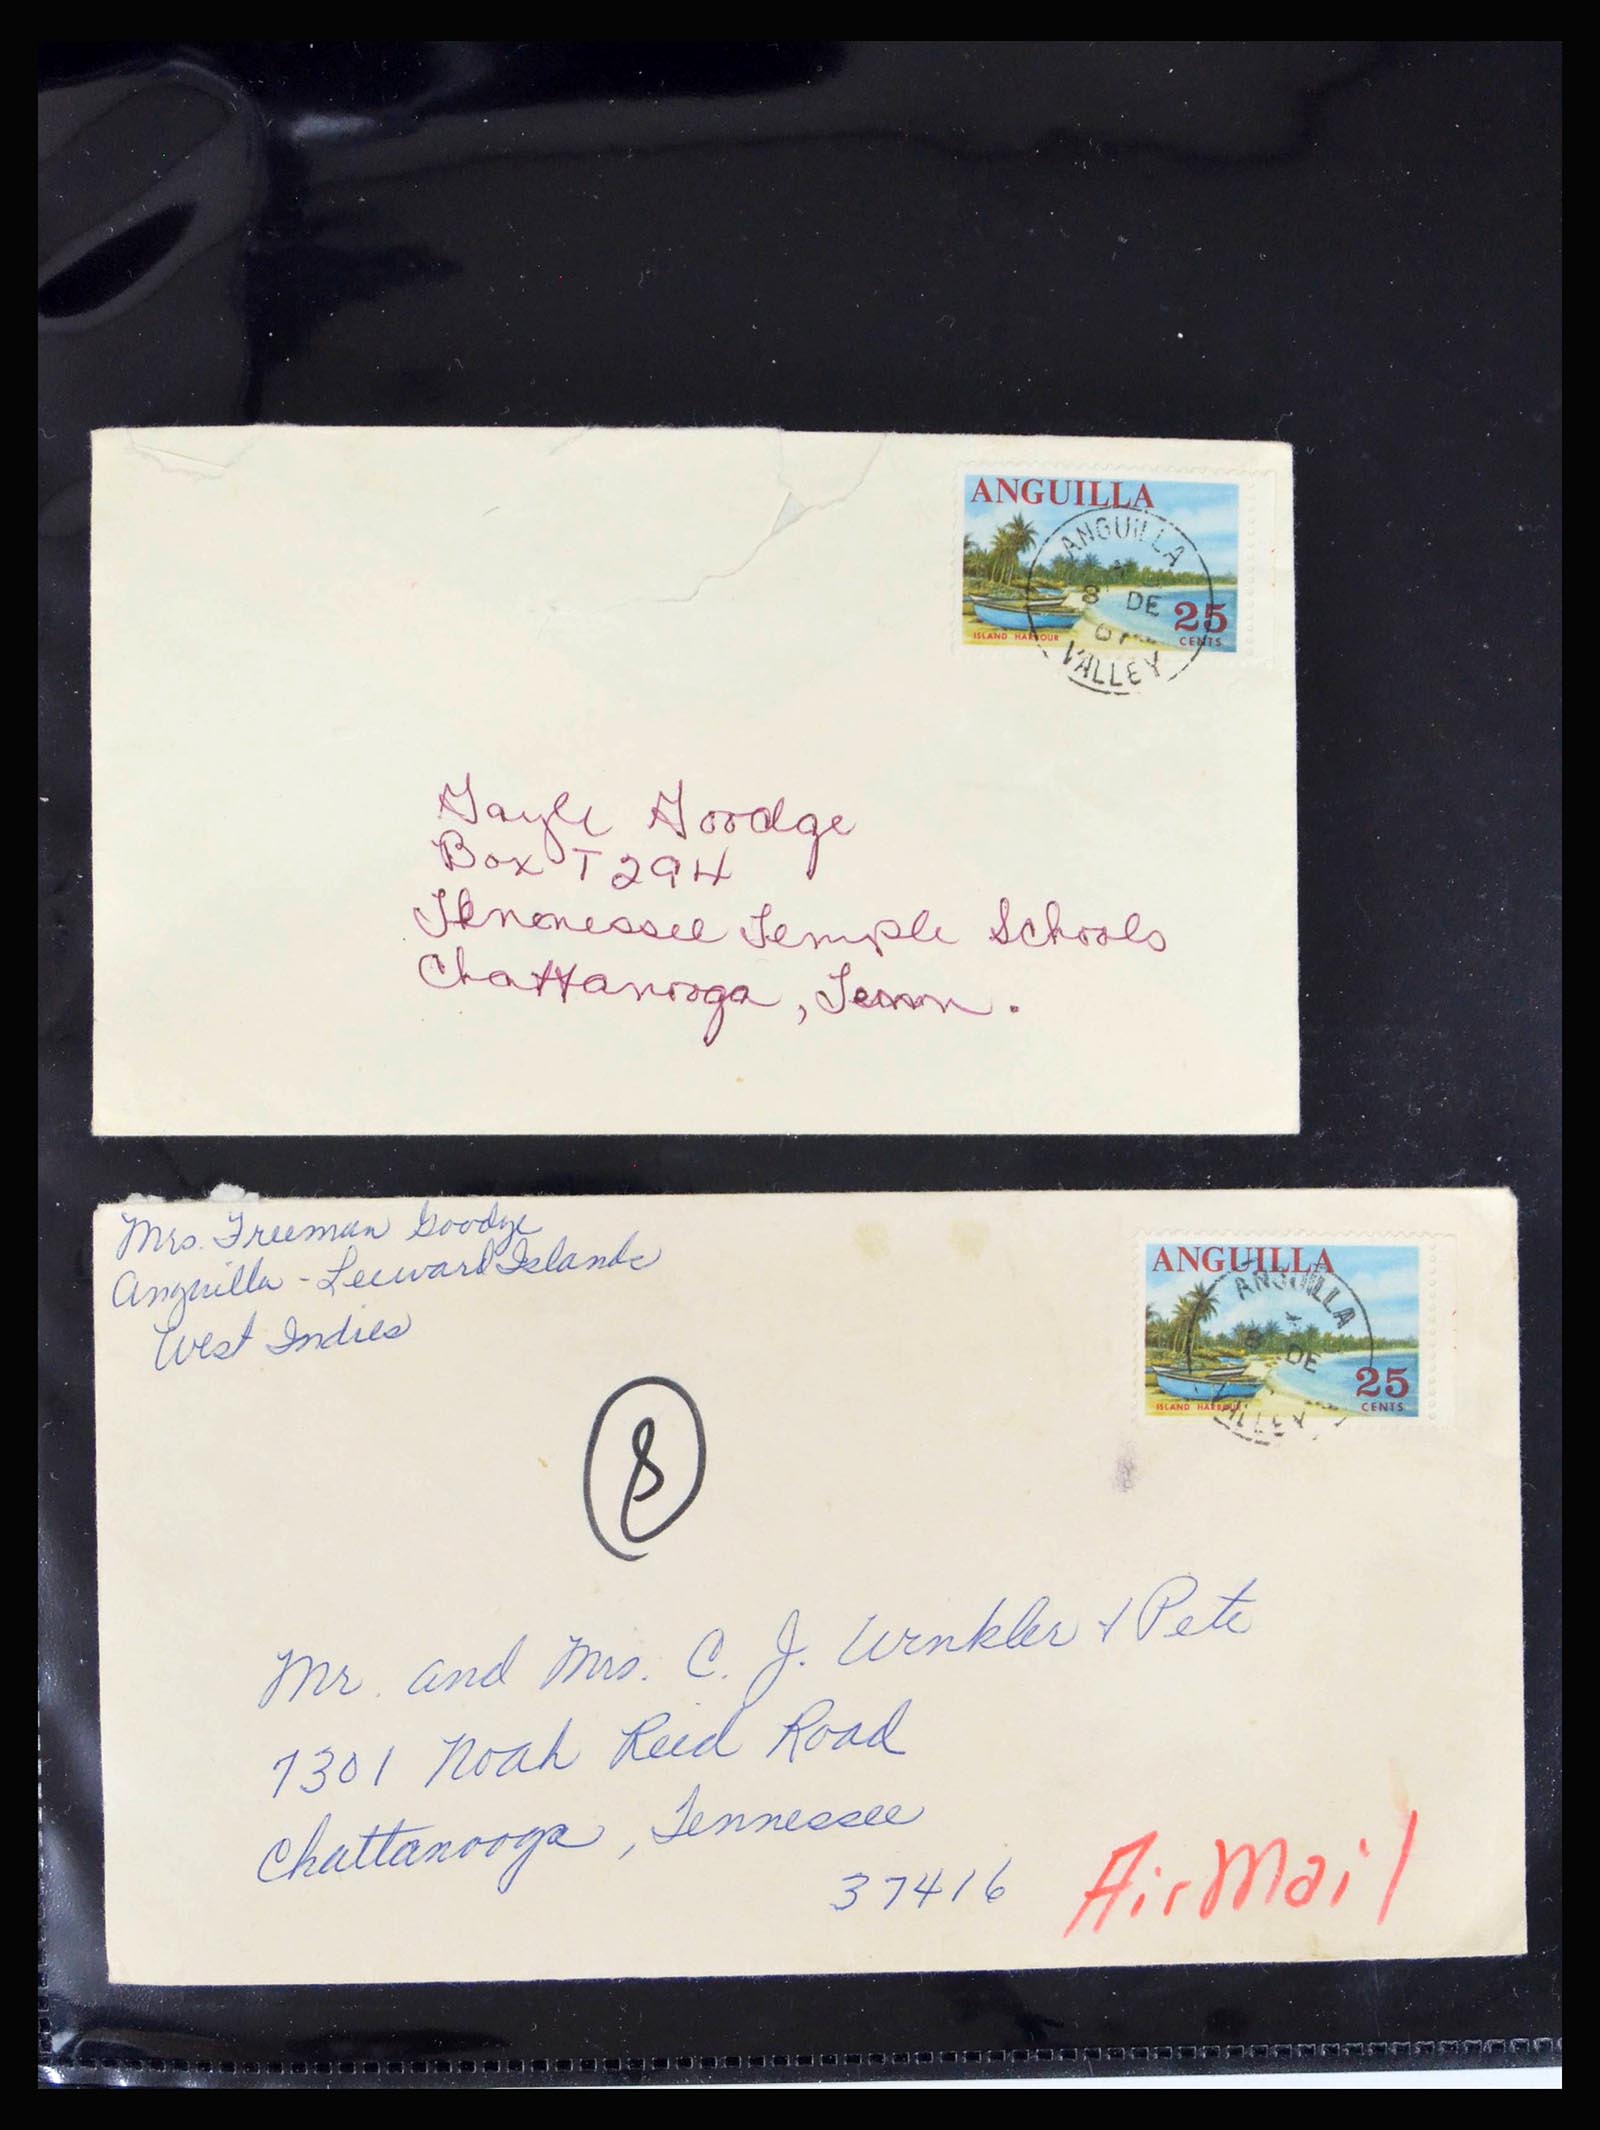 ANGUILLA
ANGUILLA
8 DE
67
VALLEY
25
CENTS
ISLAND HARBOUR
Gayle Goodge
Box T294
Tennessee Temple Schools
Chattanooga, Tenn.
Mrs. Freeman Goodge
Anguilla - Leeward Islands
West Indies
ANGUILLA
ANGUILLA
8 DE
VALLEY
25
CENTS
ISLAND HARBOUR
8
Mr. and Mrs. C. J. Winkler + Pete
7301 Noah Reid Road
Chattanooga, Tennessee
37416
Air Mail